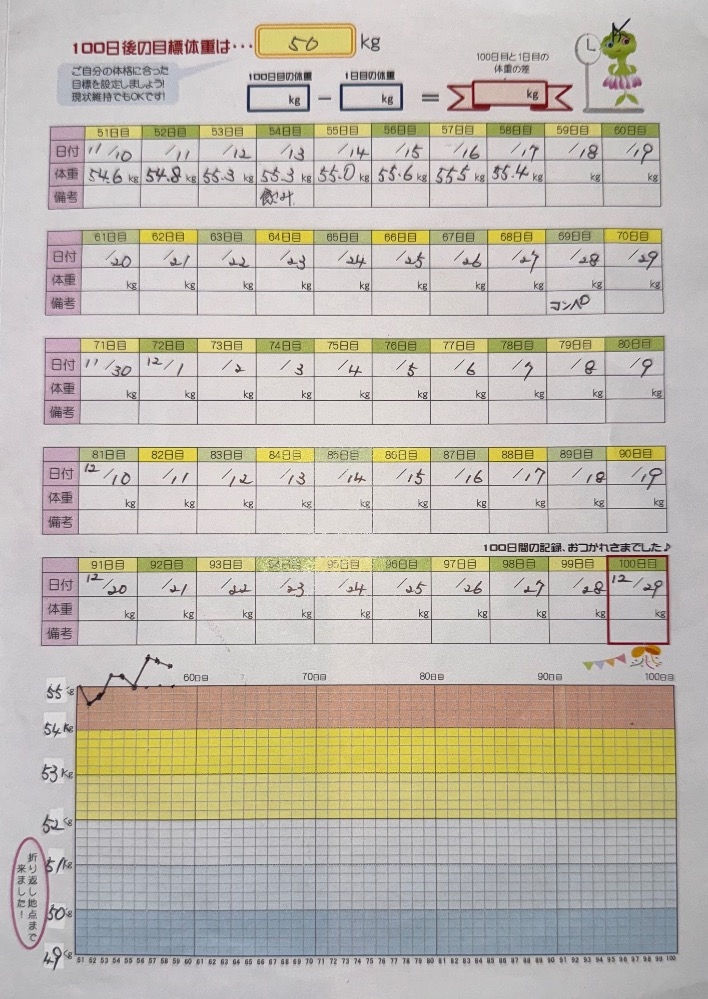 100日後の目標体重は… 50 kg
ご自分の体格に合った
目標を設定しましょう!
現状維持でもOKです!
100日目と1日目の
体重の差
100日目の体重 1日目の体重
kg − kg = kg
51日目 52日目 53日目 54日目 55日目 56日目 57日目 58日目 59日目 60日目
日付 11/10 /11 /12 /13 /14 /15 /16 /17 /18 /19
体重 54.6 kg 54.8 kg 55.3 kg 55.3 kg 55.0 kg 55.6 kg 55.5 kg 55.4 kg kg kg
備考 飲み
61日目 62日目 63日目 64日目 65日目 66日目 67日目 68日目 69日目 70日目
日付 /20 /21 /22 /23 /24 /25 /26 /27 /28 /29
体重 kg kg kg kg kg kg kg kg kg kg
備考 コンペ
71日目 72日目 73日目 74日目 75日目 76日目 77日目 78日目 79日目 80日目
日付 11/30 12/1 /2 /3 /4 /5 /6 /7 /8 /9
体重 kg kg kg kg kg kg kg kg kg kg
備考
81日目 82日目 83日目 84日目 85日目 86日目 87日目 88日目 89日目 90日目
日付 12/10 /11 /12 /13 /14 /15 /16 /17 /18 /19
体重 kg kg kg kg kg kg kg kg kg kg
備考
100日間の記録、おつかれさまでした♪
91日目 92日目 93日目 94日目 95日目 96日目 97日目 98日目 99日目 100日目
日付 12/20 /21 /22 /23 /24 /25 /26 /27 /28 12/29
体重 kg kg kg kg kg kg kg kg kg kg
備考
60日目 70日目 80日目 90日目 100日目
55kg
54kg
53kg
52kg
51kg
50kg
49kg
折り返し地点まで
来ました!
51 52 53 54 55 56 57 58 59 60 61 62 63 64 65 66 67 68 69 70 71 72 73 74 75 76 77 78 79 80 81 82 83 84 85 86 87 88 89 90 91 92 93 94 95 96 97 98 99 100